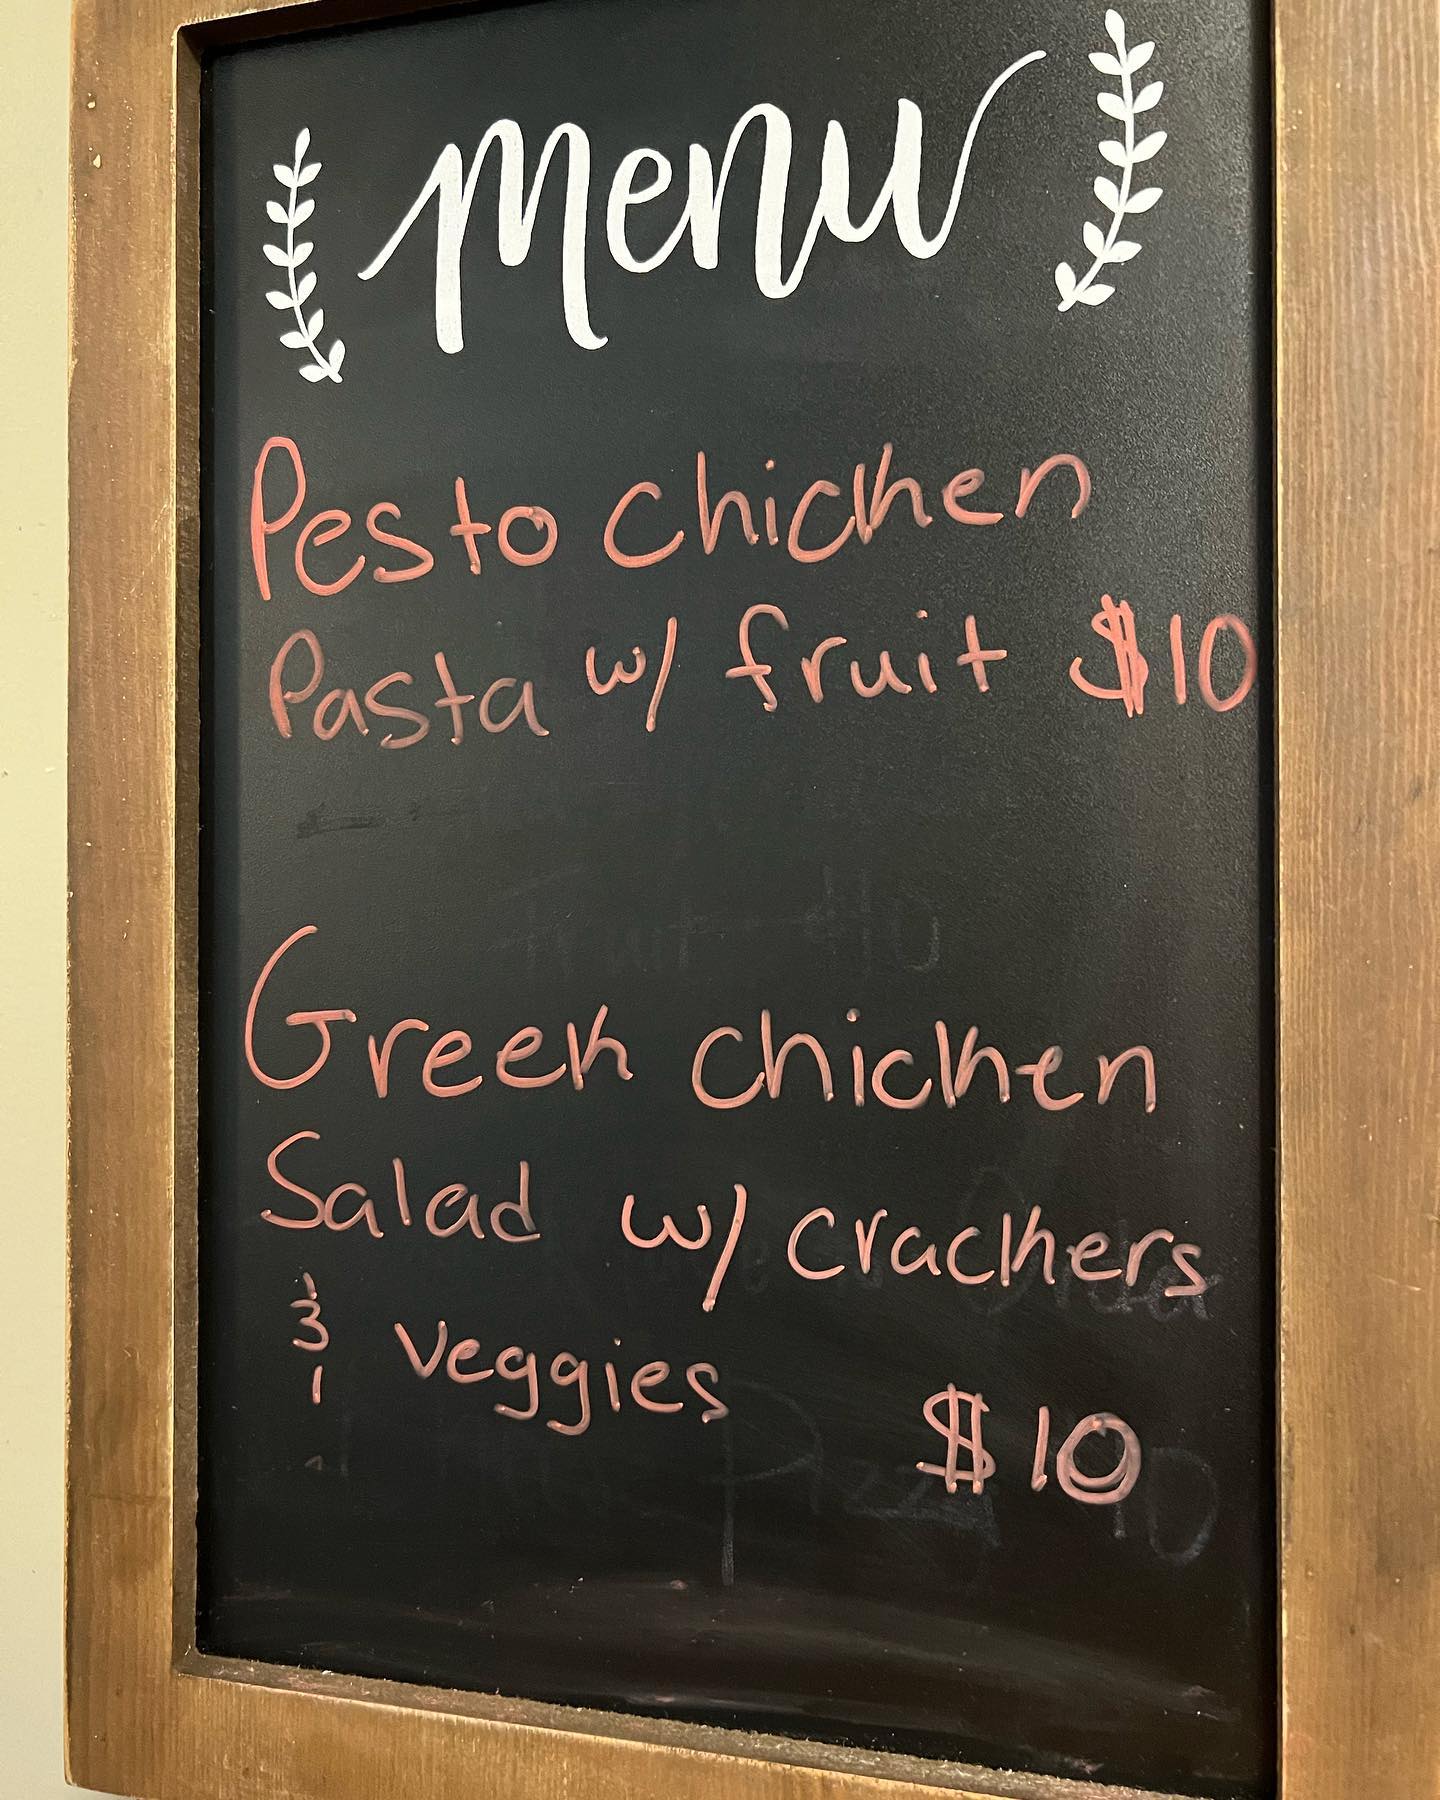 menu
Pesto chicken
Pasta w/ fruit $10
Fruit $10
Greek chicken
Salad w/ crackers
& veggies
$10
Pizza 10